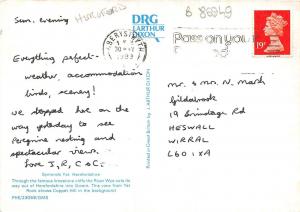 Sun. evening
Everything perfect -
weather, accommodation
birds, scenery!
We stopped here on the
way yesterday to see
Peregrine nesting and
spectacular views.
Love J, R, C & C.
Symonds Yat Herefordshire
Through the famous limestone cliffs the River Wye cuts its
way out of Herefordshire into Gwent. The view from Yat
Rock shows Coppet Hill in the background
DRG
J. ARTHUR
DIXON
Printed in Great Britain by J. ARTHUR DIXON
1989
Pass on you
19
Mr. & Mrs N. Marsh,
19
HESWALL
WIRRAL
L60 1XA